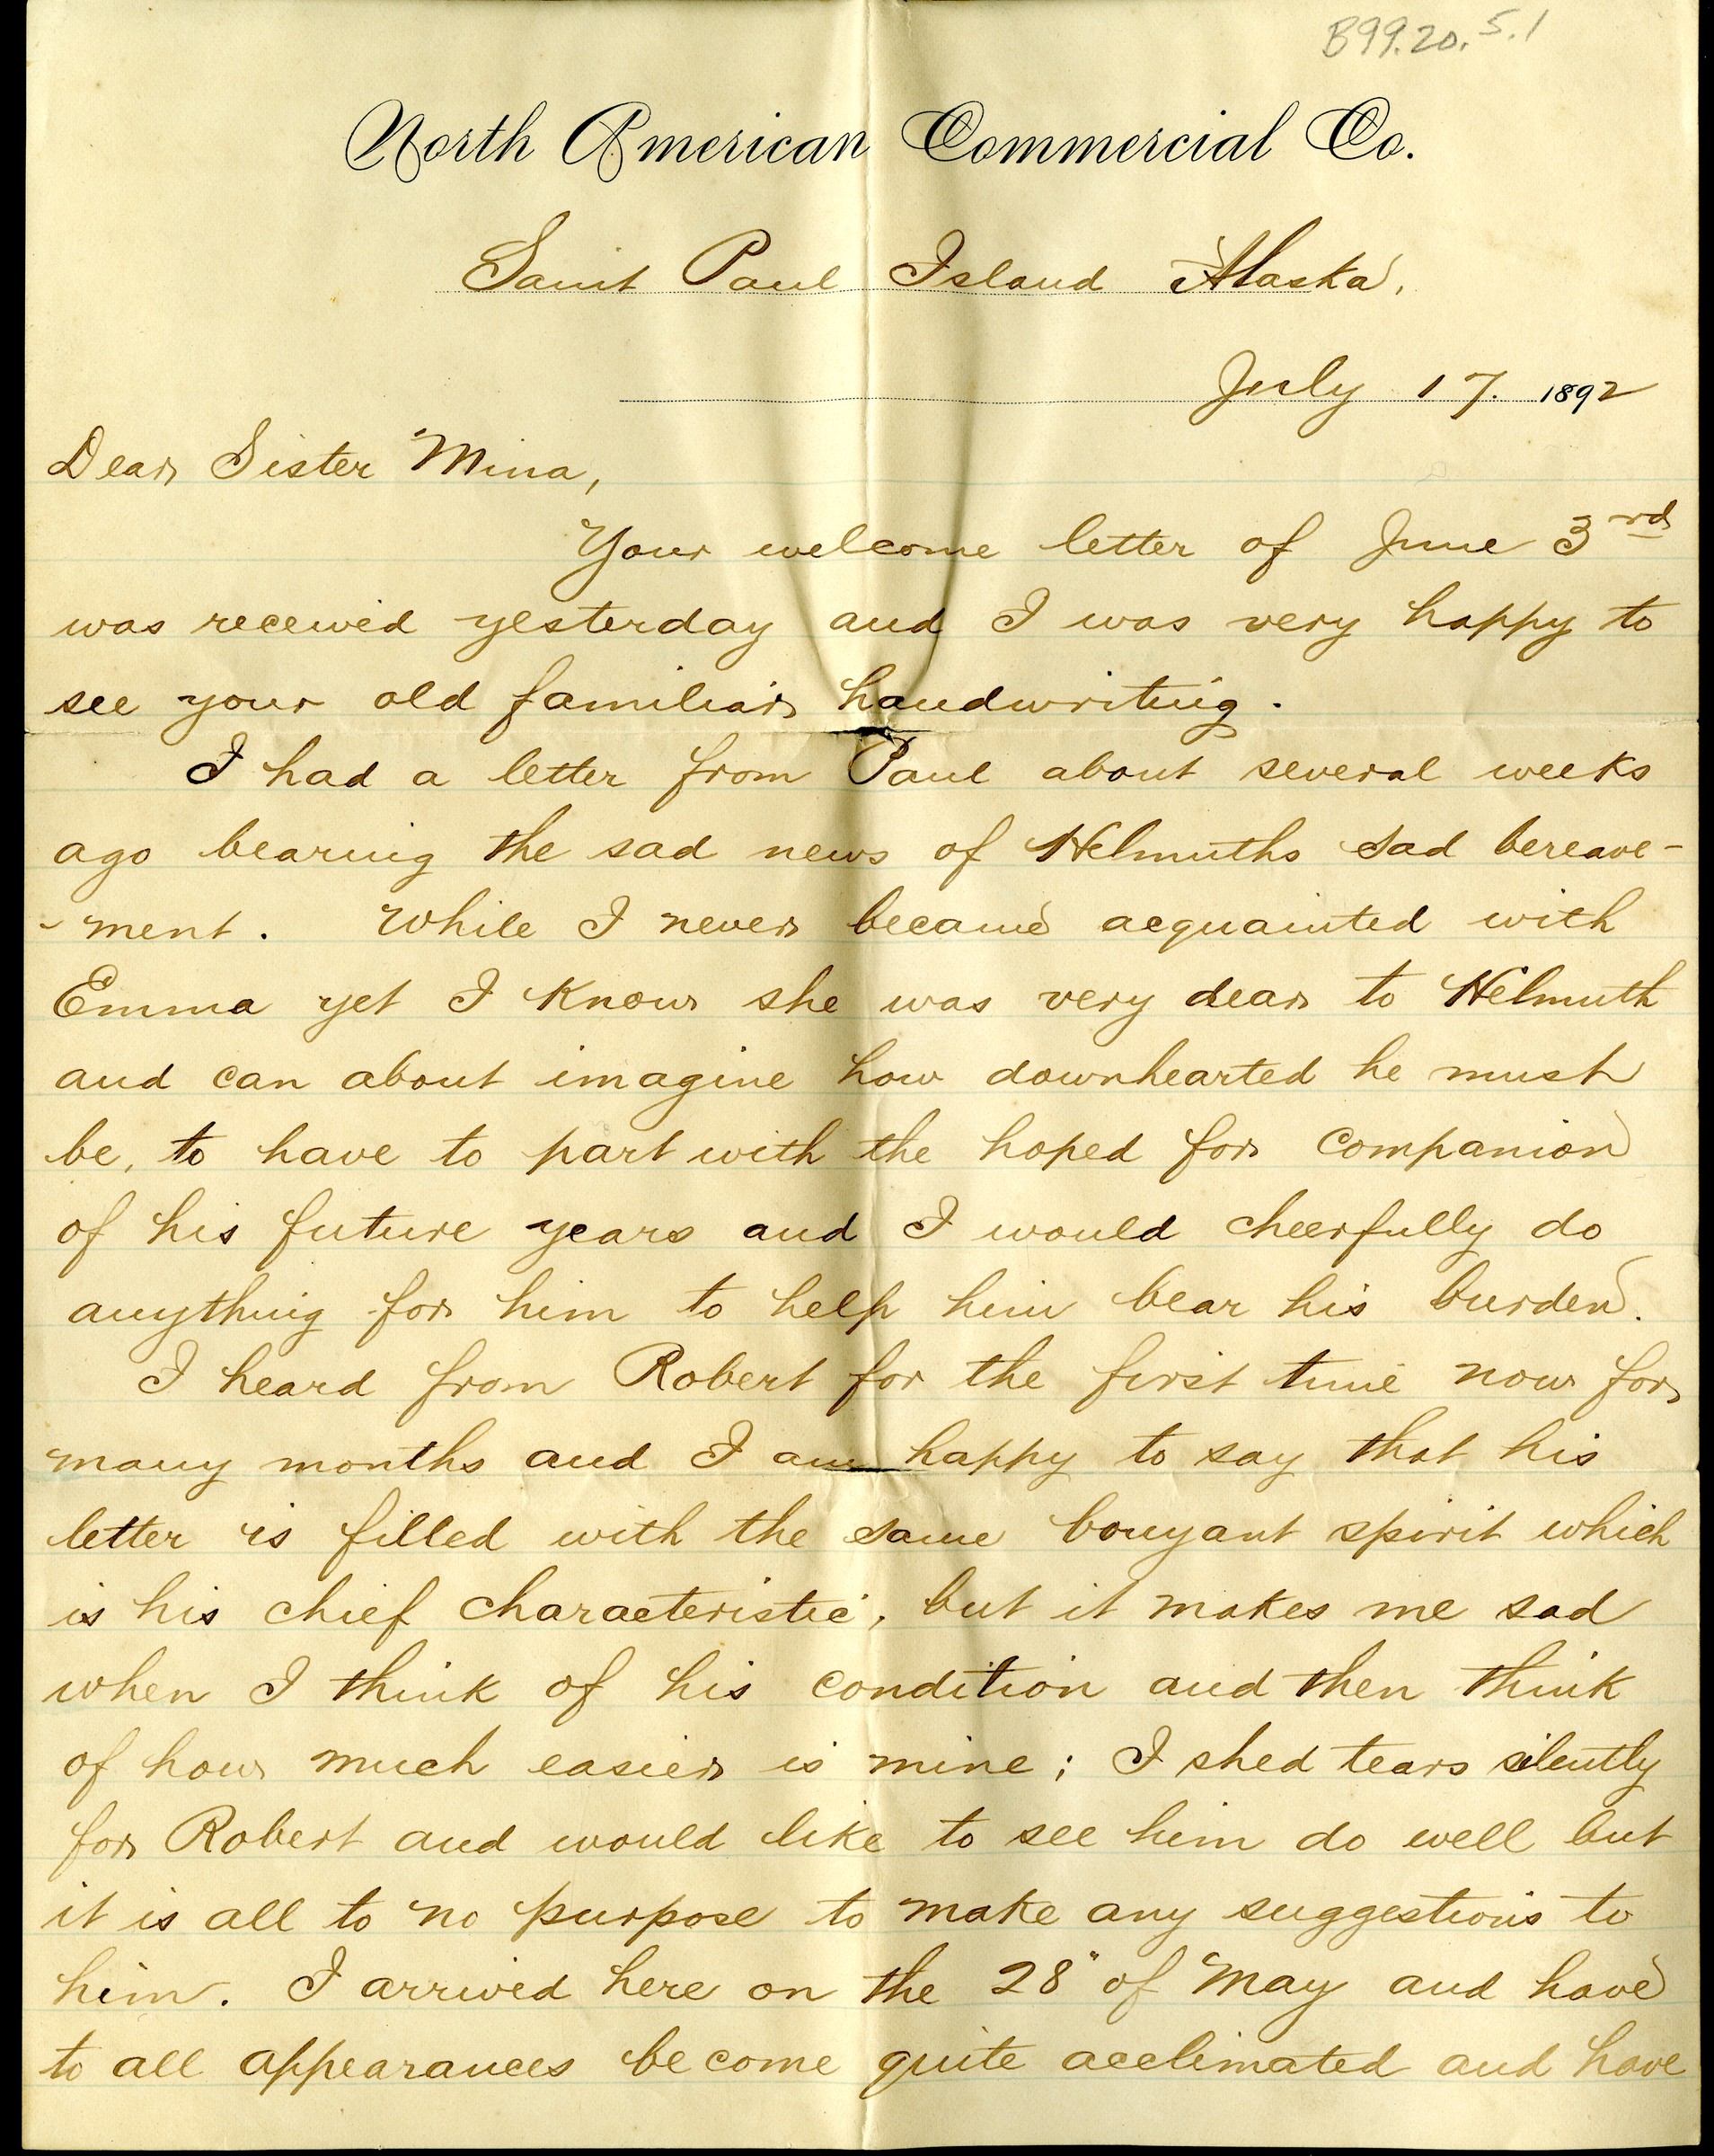 B99.20.5.1
North American Commercial Co.
Saint Paul Island Alaska.
July 17. 1892
Dear Sister Mina,
Your welcome letter of June 3rd
was received yesterday and I was very happy to
see your old familiar handwriting.
I had a letter from Paul about several weeks
ago bearing the sad news of Helmuths sad bereave-
-ment. While I never became acquainted with
Emma yet I know she was very dear to Helmuth
and can about imagine how downhearted he must
be, to have to part with the hoped for companion
of his future years and I would cheerfully do
anything for him to help him bear his burden.
I heard from Robert for the first time now for
many months and I am happy to say that his
letter is filled with the same bouyant spirit which
is his chief characteristic, but it makes me sad
when I think of his condition and then think
of how much easier is mine; I shed tears silently
for Robert and would like to see him do well but
it is all to no purpose to make any suggestions to
him. I arrived here on the 28" of May and have
to all appearances become quite acclimated and have